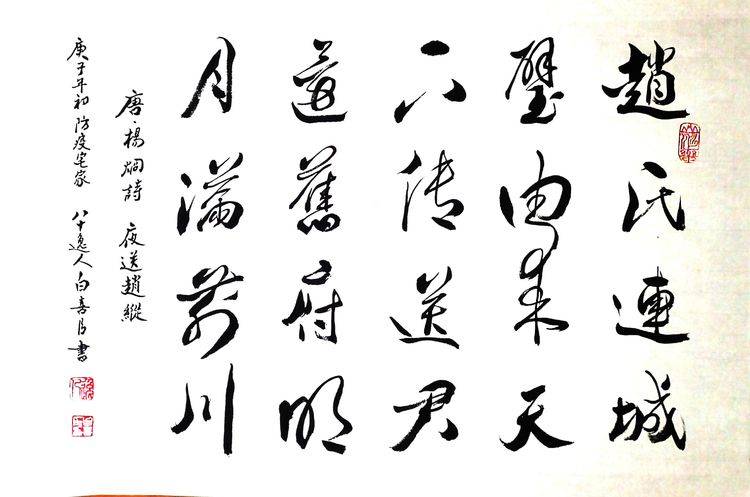 趙氏連城
璧由来天
下传送君
還舊府明
月滿前川
唐·楊炯詩 夜送趙縱
庚子年初防疫宅家 八十逸人白喜書